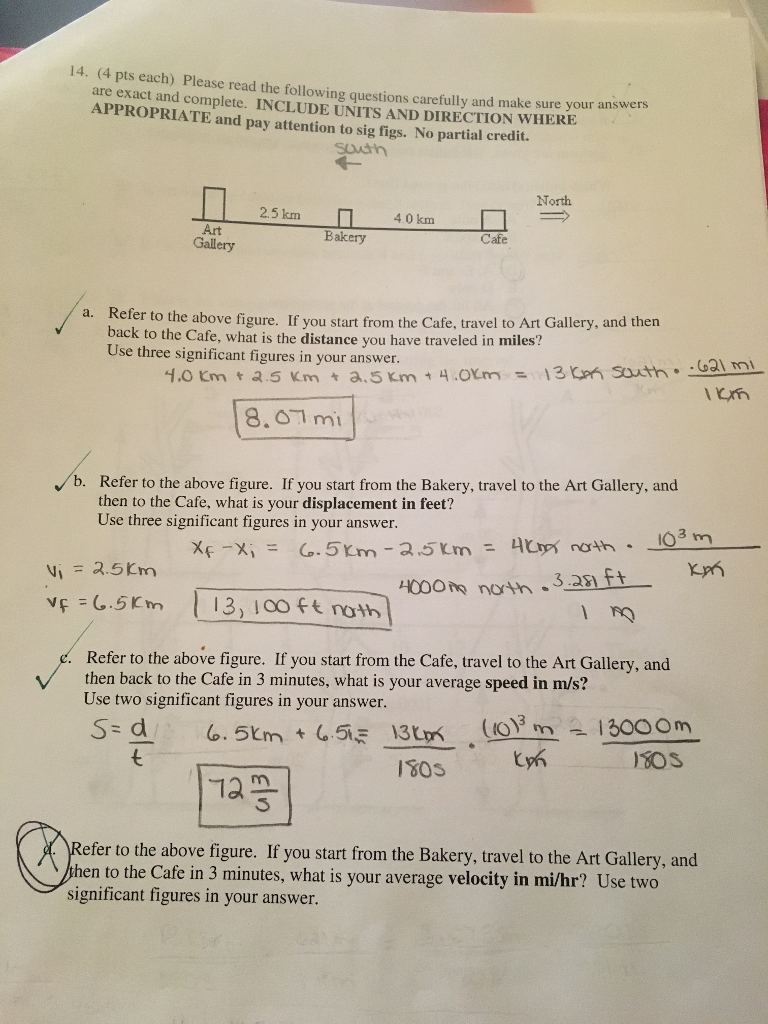 14. (4 pts each) Please read the following questions carefully and make sure your answers
are exact and complete. INCLUDE UNITS AND DIRECTION WHERE
APPROPRIATE and pay attention to sig figs. No partial credit.
south
←
North
⇒
2.5 km
4.0 km
Art
Gallery
Bakery
Cafe
a. Refer to the above figure. If you start from the Cafe, travel to Art Gallery, and then
back to the Cafe, what is the distance you have traveled in miles?
Use three significant figures in your answer.
4.0 km + 2.5 km + 2.5 km + 4.0km = 13 km south • .621 mi
1 km
8.07 mi
b. Refer to the above figure. If you start from the Bakery, travel to the Art Gallery, and
then to the Cafe, what is your displacement in feet?
Use three significant figures in your answer.
xf - xi = 6.5km - 2.5km = 4km north • 10³ m
km
vi = 2.5km
4000m north • 3.281 ft
1 m
vf = 6.5km
13,100 ft north
c. Refer to the above figure. If you start from the Cafe, travel to the Art Gallery, and
then back to the Cafe in 3 minutes, what is your average speed in m/s?
Use two significant figures in your answer.
S = d
t
6.5km + 6.5 = 13km
180s
• (10)³ m
km
= 13000m
180s
72 m
s
d. Refer to the above figure. If you start from the Bakery, travel to the Art Gallery, and
then to the Cafe in 3 minutes, what is your average velocity in mi/hr? Use two
significant figures in your answer.